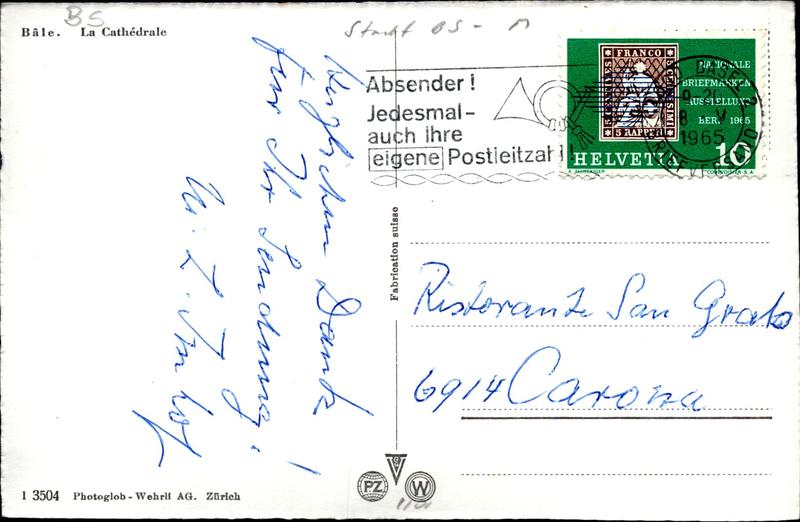 BS
Bâle. La Cathédrale
Stadt BS - M
Absender!
Jedesmal-
auch Ihre
eigene Postleitzahl!
BASEL 2
1965
FRANCO
5 RAPPEN
NATIONALE
BRIEFMARKEN
AUSSTELLUNG
BERN 1965
HELVETIA 10
COURVOISIER S.A.
Herzlichen Dank
für Ihre Sendung!
Fabrication suisse
Ristorante San Grato
6914 Carona
PZ W
1 3504 Photoglob-Wehrli AG. Zürich